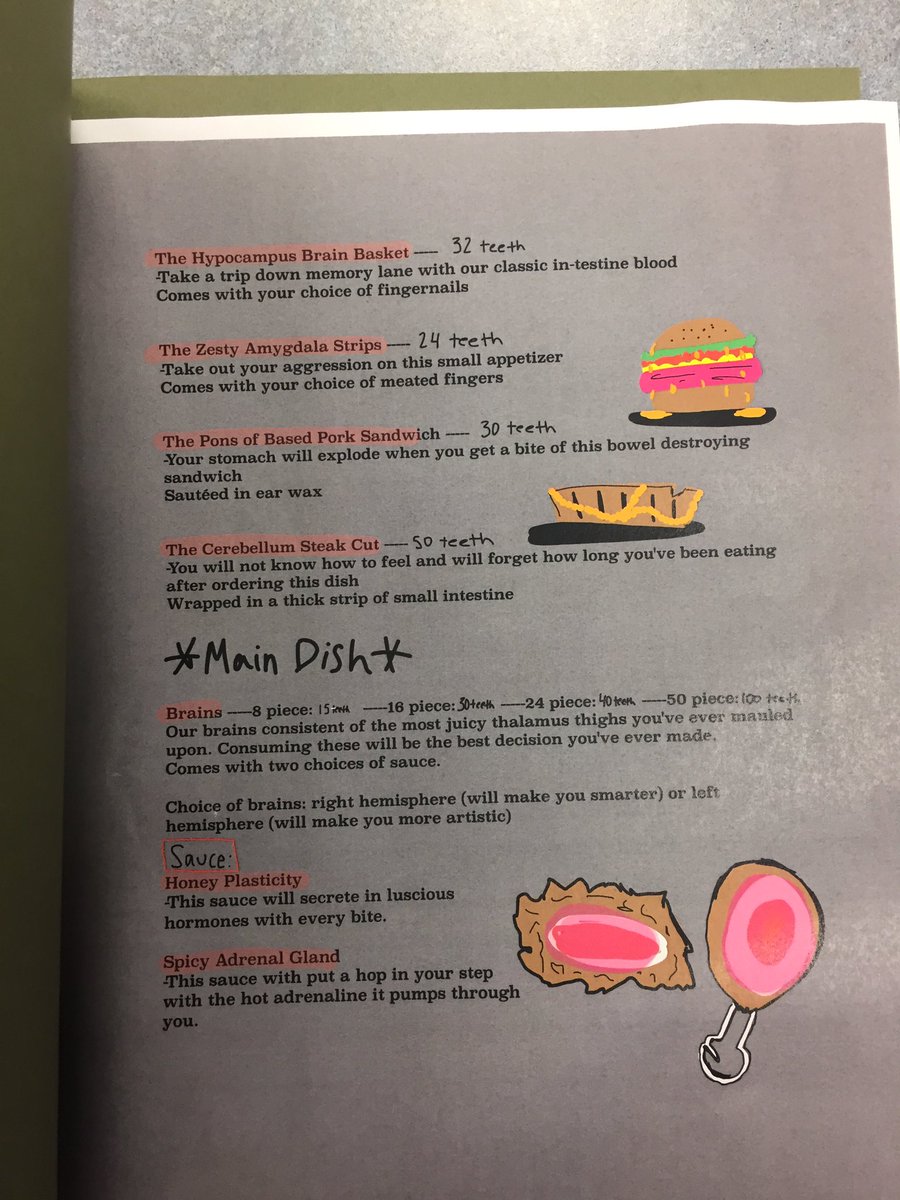 The Hypocampus Brain Basket ---- 32 teeth
-Take a trip down memory lane with our classic in-testine blood
Comes with your choice of fingernails
The Zesty Amygdala Strips ---- 24 teeth
-Take out your aggression on this small appetizer
Comes with your choice of meated fingers
The Pons of Based Pork Sandwich ---- 30 teeth
-Your stomach will explode when you get a bite of this bowel destroying
sandwich
Sautéed in ear wax
The Cerebellum Steak Cut ---- 50 teeth
-You will not know how to feel and will forget how long you've been eating
after ordering this dish
Wrapped in a thick strip of small intestine
*Main Dish*
Brains ----8 piece: 15 teeth ----16 piece: 30 teeth ----24 piece: 40 teeth ----50 piece: 100 teeth
Our brains consistent of the most juicy thalamus thighs you've ever mauled
upon. Consuming these will be the best decision you've ever made.
Comes with two choices of sauce.
Choice of brains: right hemisphere (will make you smarter) or left
hemisphere (will make you more artistic)
Sauce:
Honey Plasticity
-This sauce will secrete in luscious
hormones with every bite.
Spicy Adrenal Gland
-This sauce with put a hop in your step
with the hot adrenaline it pumps through
you.